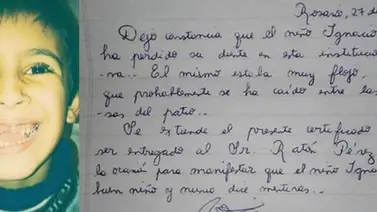 Rosario, 27 de
Dejo constancia que el niño Ignacio
ha perdido su diente en esta institució
na.. El mismo estaba muy flojo,
que probablemente se ha caído entre las
sas del patio..
Se extiende el presente certificado
ser entregado al Sr. Ratón Pérez
la ocasión para manifestar que el niño Igna
buen niño y nunca dice mentiras..